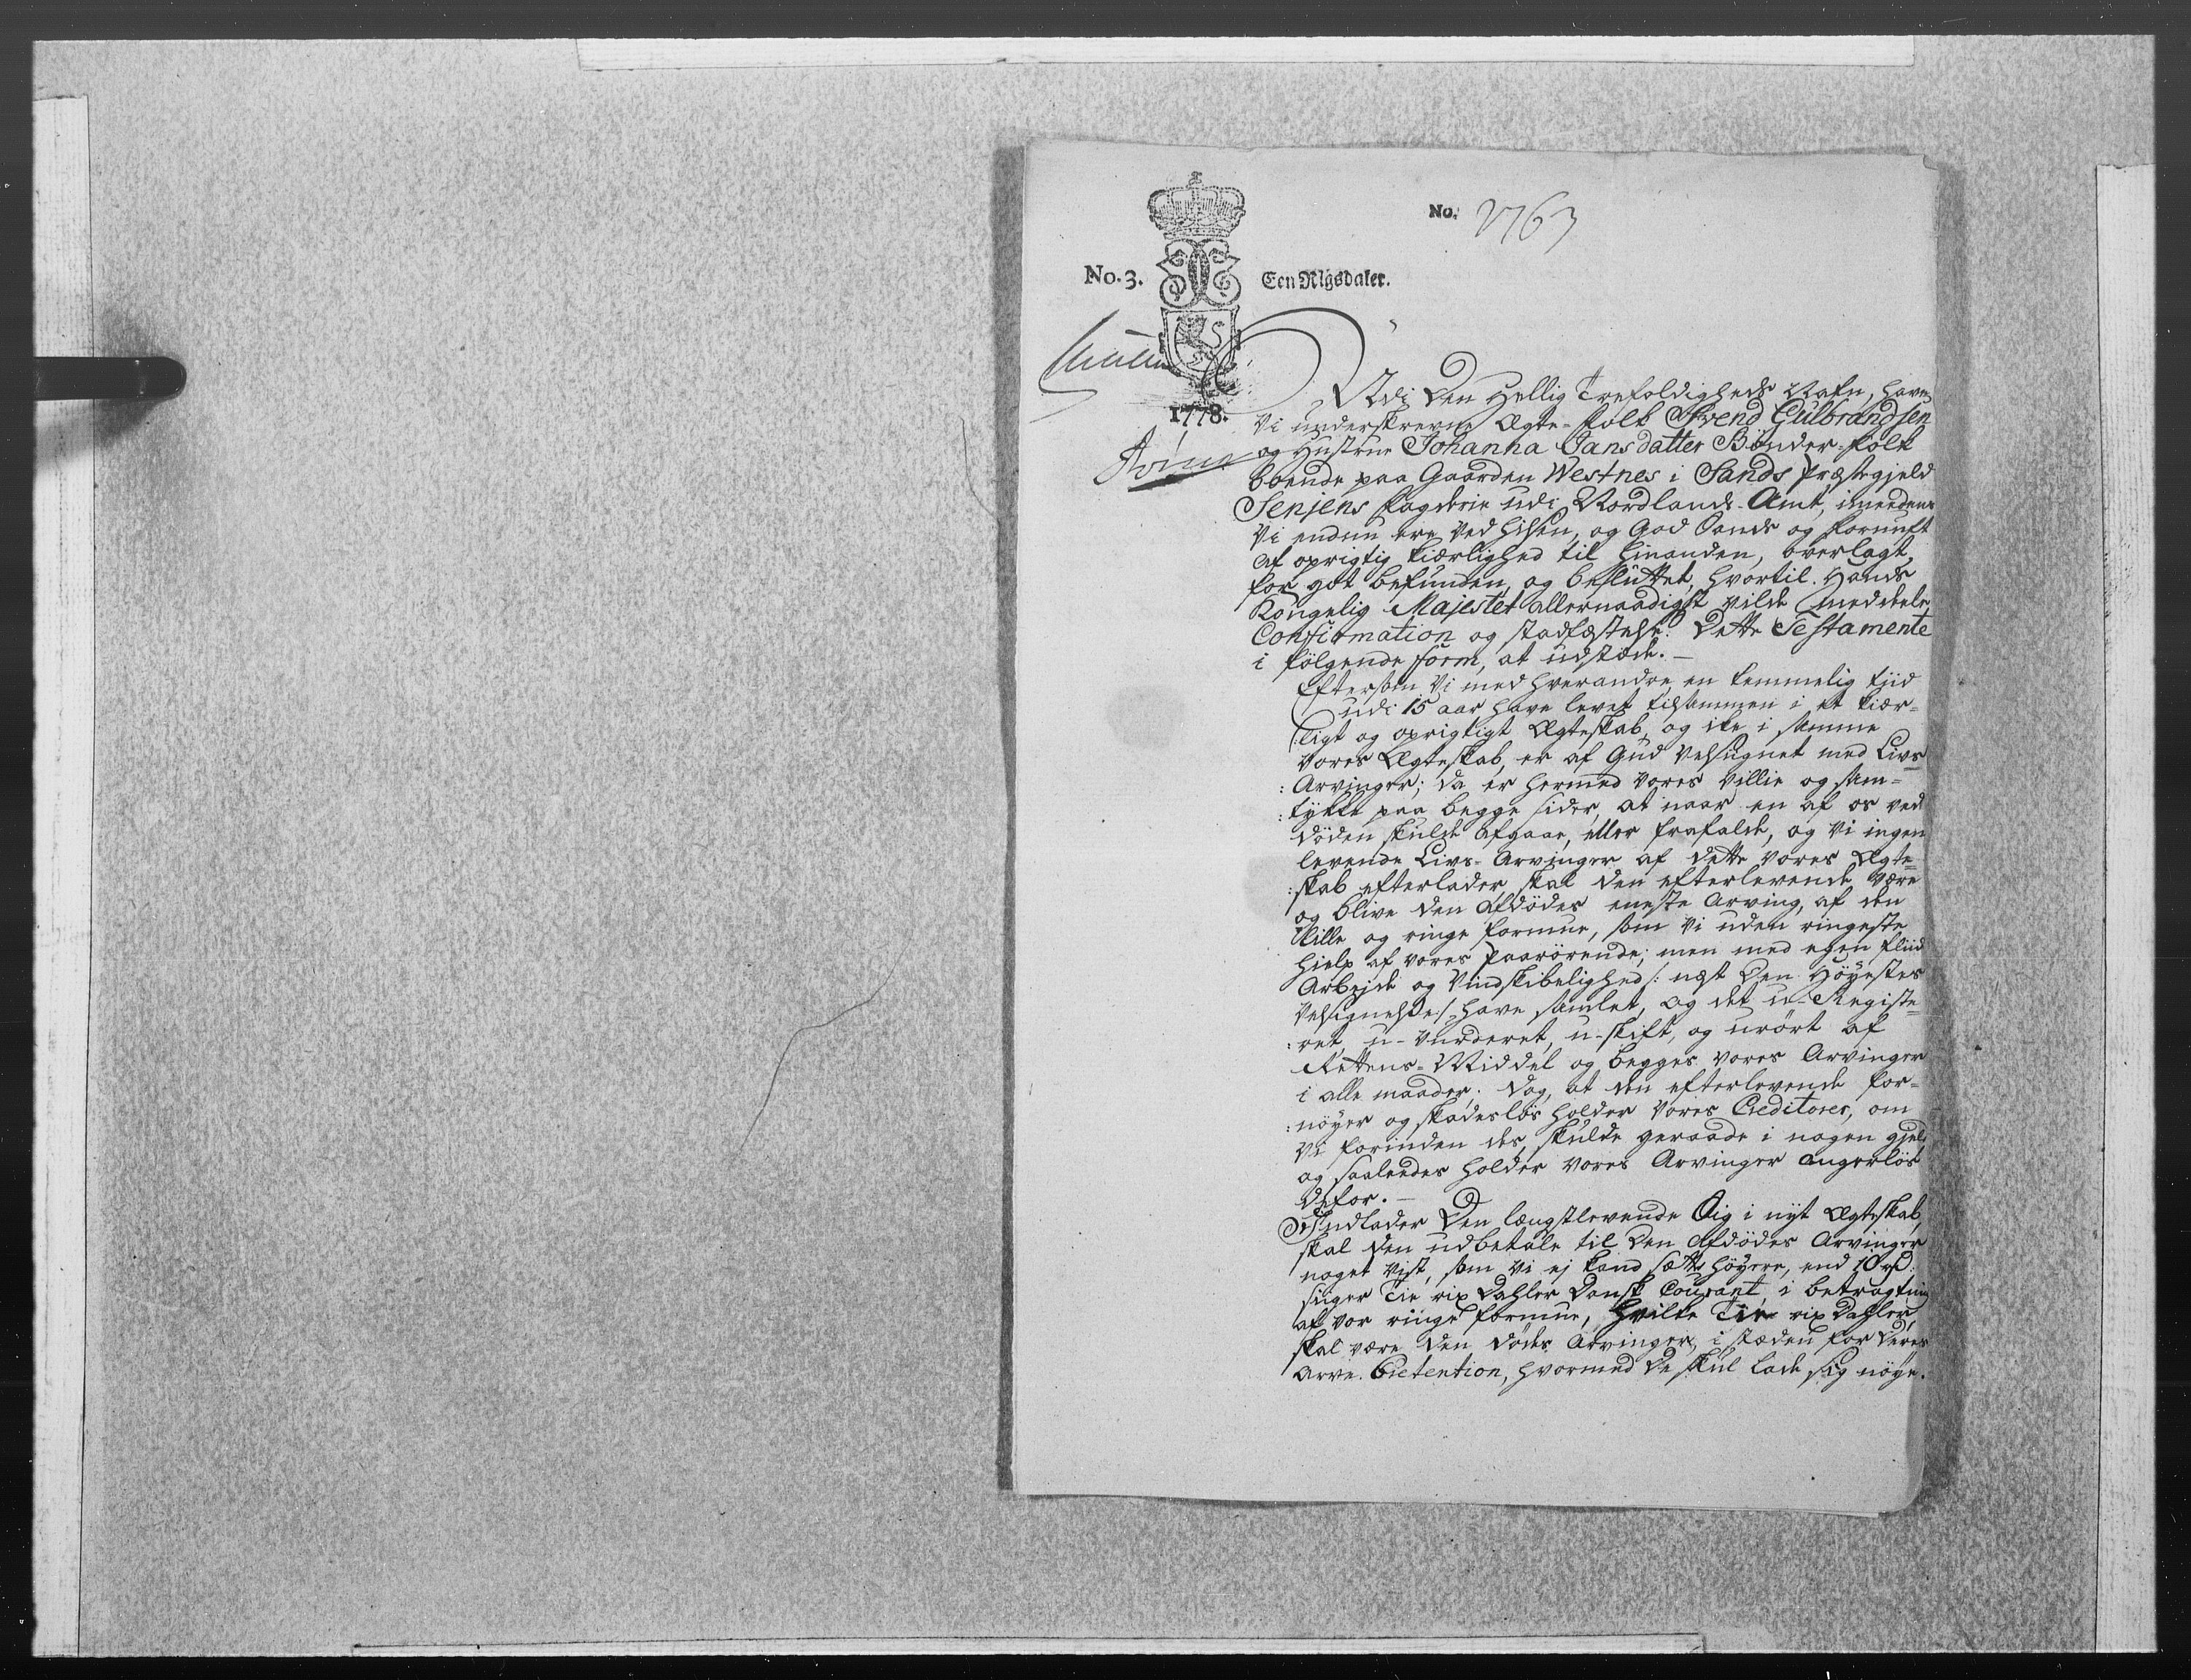 No. 2763
No. 3.
Een Rigsdaler.
1778.
Udi Den Hellig Trefoldigheds Nafn, have
Vi underskrevne Ægte-folk Svend Gulbrandsen
og Hustrue Johanna Jans datter Bönder-folk
boende paa Gaarden Westnes i Sands Præstegjeld
Senjens fogderie udi Nordlands-Amt, imedens
Vi endnu ere ved hilsen, og God Sands og fornuft
af oprigtig kiærlighed til hinanden, overlagt,
for got befunden, og besluttet, hvortil Hands
Kongelig Majestet allernaadigst vilde meddele,
Confirmation og stadfæstelse: Dette Testamente
i fölgende form, at udstæde. —
Eftersom Vi med hverandre en temmelig tiid
udi 15 aar have levet tilsammen i et kiær-
:ligt og oprigtigt Ægteskab, og ike i samme
Vores Ægteskab, er af Gud velsignet med Livs-
:Arvinger; da er hermed Vores Villie og sam-
:tykke paa begge sider, at naar en af os ved
döden skulde afgaae, eller frafalde, og Vi ingen
levende Livs-Arvinger af dette Vores Ægte-
:skab efterlader, skal den efterlevende være
og blive den Afdödes eneste Arving, af den
lille og ringe formue, som Vi uden ringeste
hielp af vores Paarörende; men med egen fliid
Arbejde og Vindskibelighed /: næst Den Höyestes
Velsignelse :/ have samlet, og det u-Registe-
:ret, u-vurderet, u-skift, og urört af
Rettens-Middel og begges Vores Arvinger
i alle maader; dog, at den efterlevende for-
:nöyer og skadeslös holder Vores Creditores, om
Vi forinden des, skulde geraade i nogen gjeld
og saaledes holder Vores Arvinger angerlös
defor. —
Indlader Den længstlevende Sig i nyt Ægteskab,
skal den udbetale til Den Afdödes Arvinger
noget vist, som Vi ej kand sætte höyere, end 10 rd:
siiger Tie rix Dahler Dansk Courant, i betragtning
af vor ringe formue, hvilke Tie rix Dahler,
skal være den dödes Arvinger, i stæden for deres
Arve. Prætention, hvormed De skul lade sig nöye.